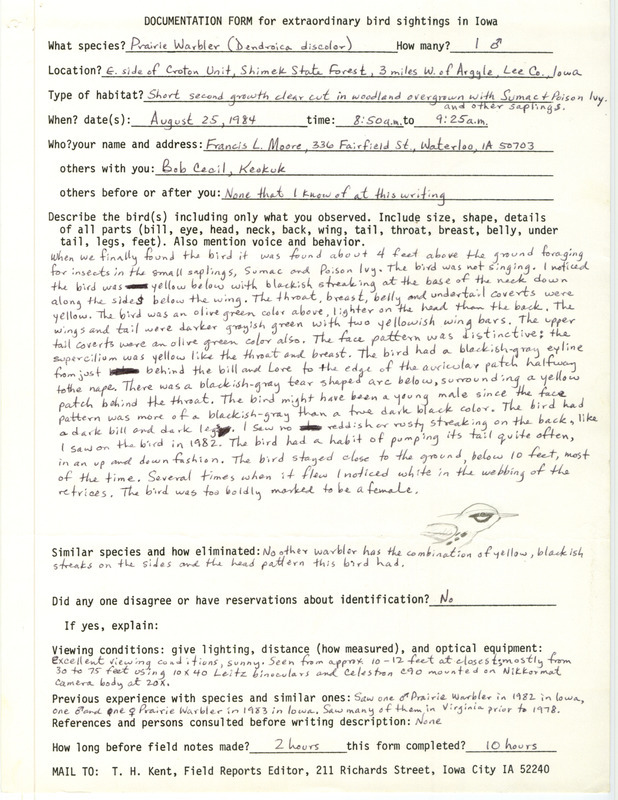 DOCUMENTATION FORM for extraordinary bird sightings in Iowa
What species? Prairie Warbler (Dendroica discolor) How many? 1 ♂
Location? E. side of Croton Unit, Shimek State Forest, 3 miles W. of Argyle, Lee Co., Iowa
Type of habitat? Short second growth clear cut in woodland overgrown with Sumac & Poison Ivy.
and other saplings.
When? date(s): August 25, 1984 time: 8:50 a.m. to 9:25 a.m.
Who? your name and address: Francis L. Moore, 336 Fairfield St., Waterloo, IA 50703
others with you: Bob Cecil, Keokuk
others before or after you: None that I know of at this writing
Describe the bird(s) including only what you observed. Include size, shape, details
of all parts (bill, eye, head, neck, back, wing, tail, throat, breast, belly, under
tail, legs, feet). Also mention voice and behavior.
When we finally found the bird it was found about 4 feet above the ground foraging
for insects in the small saplings, Sumac and Poison Ivy. The bird was not singing. I noticed
the bird was yellow below with blackish streaking at the base of the neck down
along the sides below the wing. The throat, breast, belly and undertail coverts were
yellow. The bird was an olive green color above, lighter on the head than the back. The
wings and tail were darker grayish green with two yellowish wing bars. The upper
tail coverts were an olive green color also. The face pattern was distinctive; the
supercilium was yellow like the throat and breast. The bird had a blackish-gray eyline
from just behind the bill and Lore to the edge of the auricular patch halfway
to the nape. There was a blackish-gray tear shaped arc below, surrounding a yellow
patch behind the throat. The bird might have been a young male since the face
pattern was more of a blackish-gray than a true dark black color. The bird had
a dark bill and dark legs. I saw no reddish or rusty streaking on the back, like
I saw on the bird in 1982. The bird had a habit of pumping its tail quite often,
in an up and down fashion. The bird stayed close to the ground, below 10 feet, most
of the time. Several times when it flew I noticed white in the webbing of the
retrices. The bird was too boldly marked to be a female.
Similar species and how eliminated: No other warbler has the combination of yellow, blackish
streaks on the sides and the head pattern this bird had.
Did any one disagree or have reservations about identification? No
If yes, explain:
Viewing conditions: give lighting, distance (how measured), and optical equipment:
Excellent viewing conditions, sunny. Seen from approx. 10-12 feet at closest; mostly from
30 to 75 feet using 10x40 Leitz binoculars and Celestron C90 mounted on Nikkormat
Camera body at 20X.
Previous experience with species and similar ones: Saw one ♂ Prairie Warbler in 1982 in Iowa,
one ♂ and one ♀ Prairie Warbler in 1983 in Iowa. Saw many of them in Virginia prior to 1978.
References and persons consulted before writing description: None
How long before field notes made? 2 hours this form completed? 10 hours
MAIL TO: T. H. Kent, Field Reports Editor, 211 Richards Street, Iowa City IA 52240